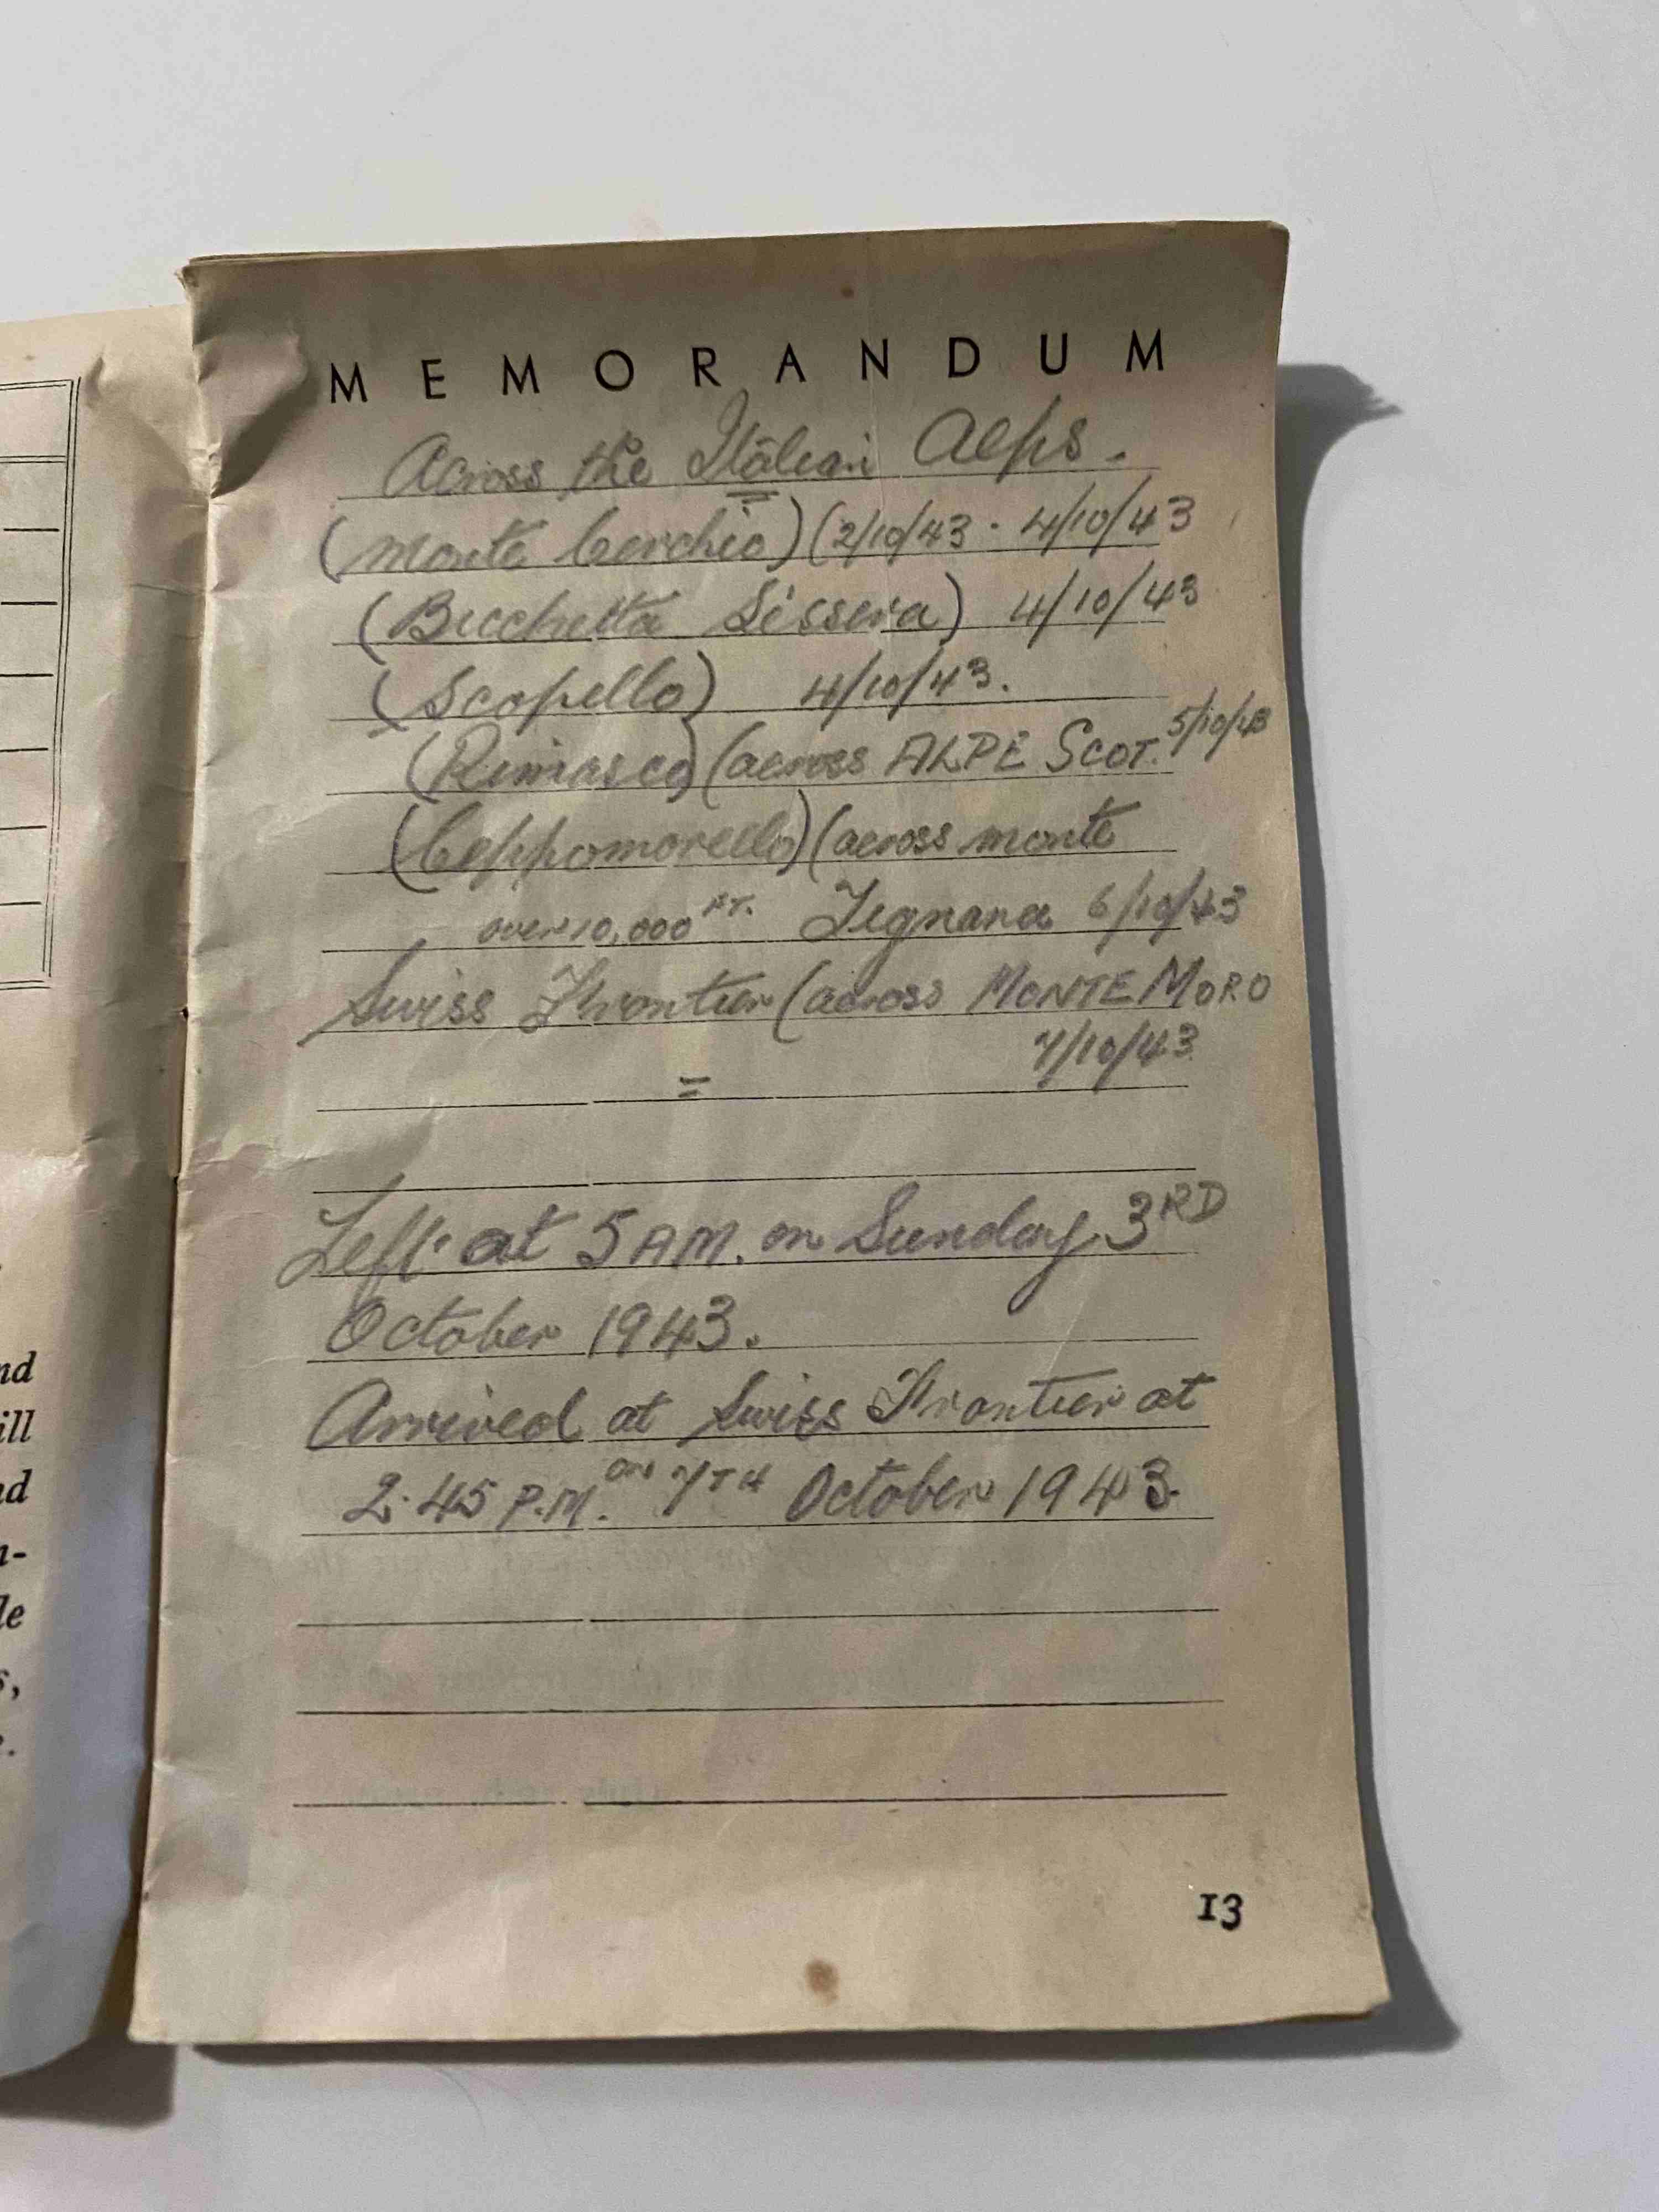 MEMORANDUM
Across the Italian Alps.
(Monte Cerchio) (2/10/43 - 4/10/43
(Bucchetta Sissera) 4/10/43
(Scopello) 4/10/43.
(Rimasco) (across ALPE SCOT. 5/10/43
(Ceppomorello) (across monte
over 10,000 FT. Tegnana 6/10/43
Swiss Frontier (across MONTE MORO
7/10/43
=
Left at 5 AM. on Sunday 3RD
October 1943.
Arrived at Swiss Frontier at
2.45 P.M. on 7TH October 1943.
13
nd
ill
nd
n-
le
s,